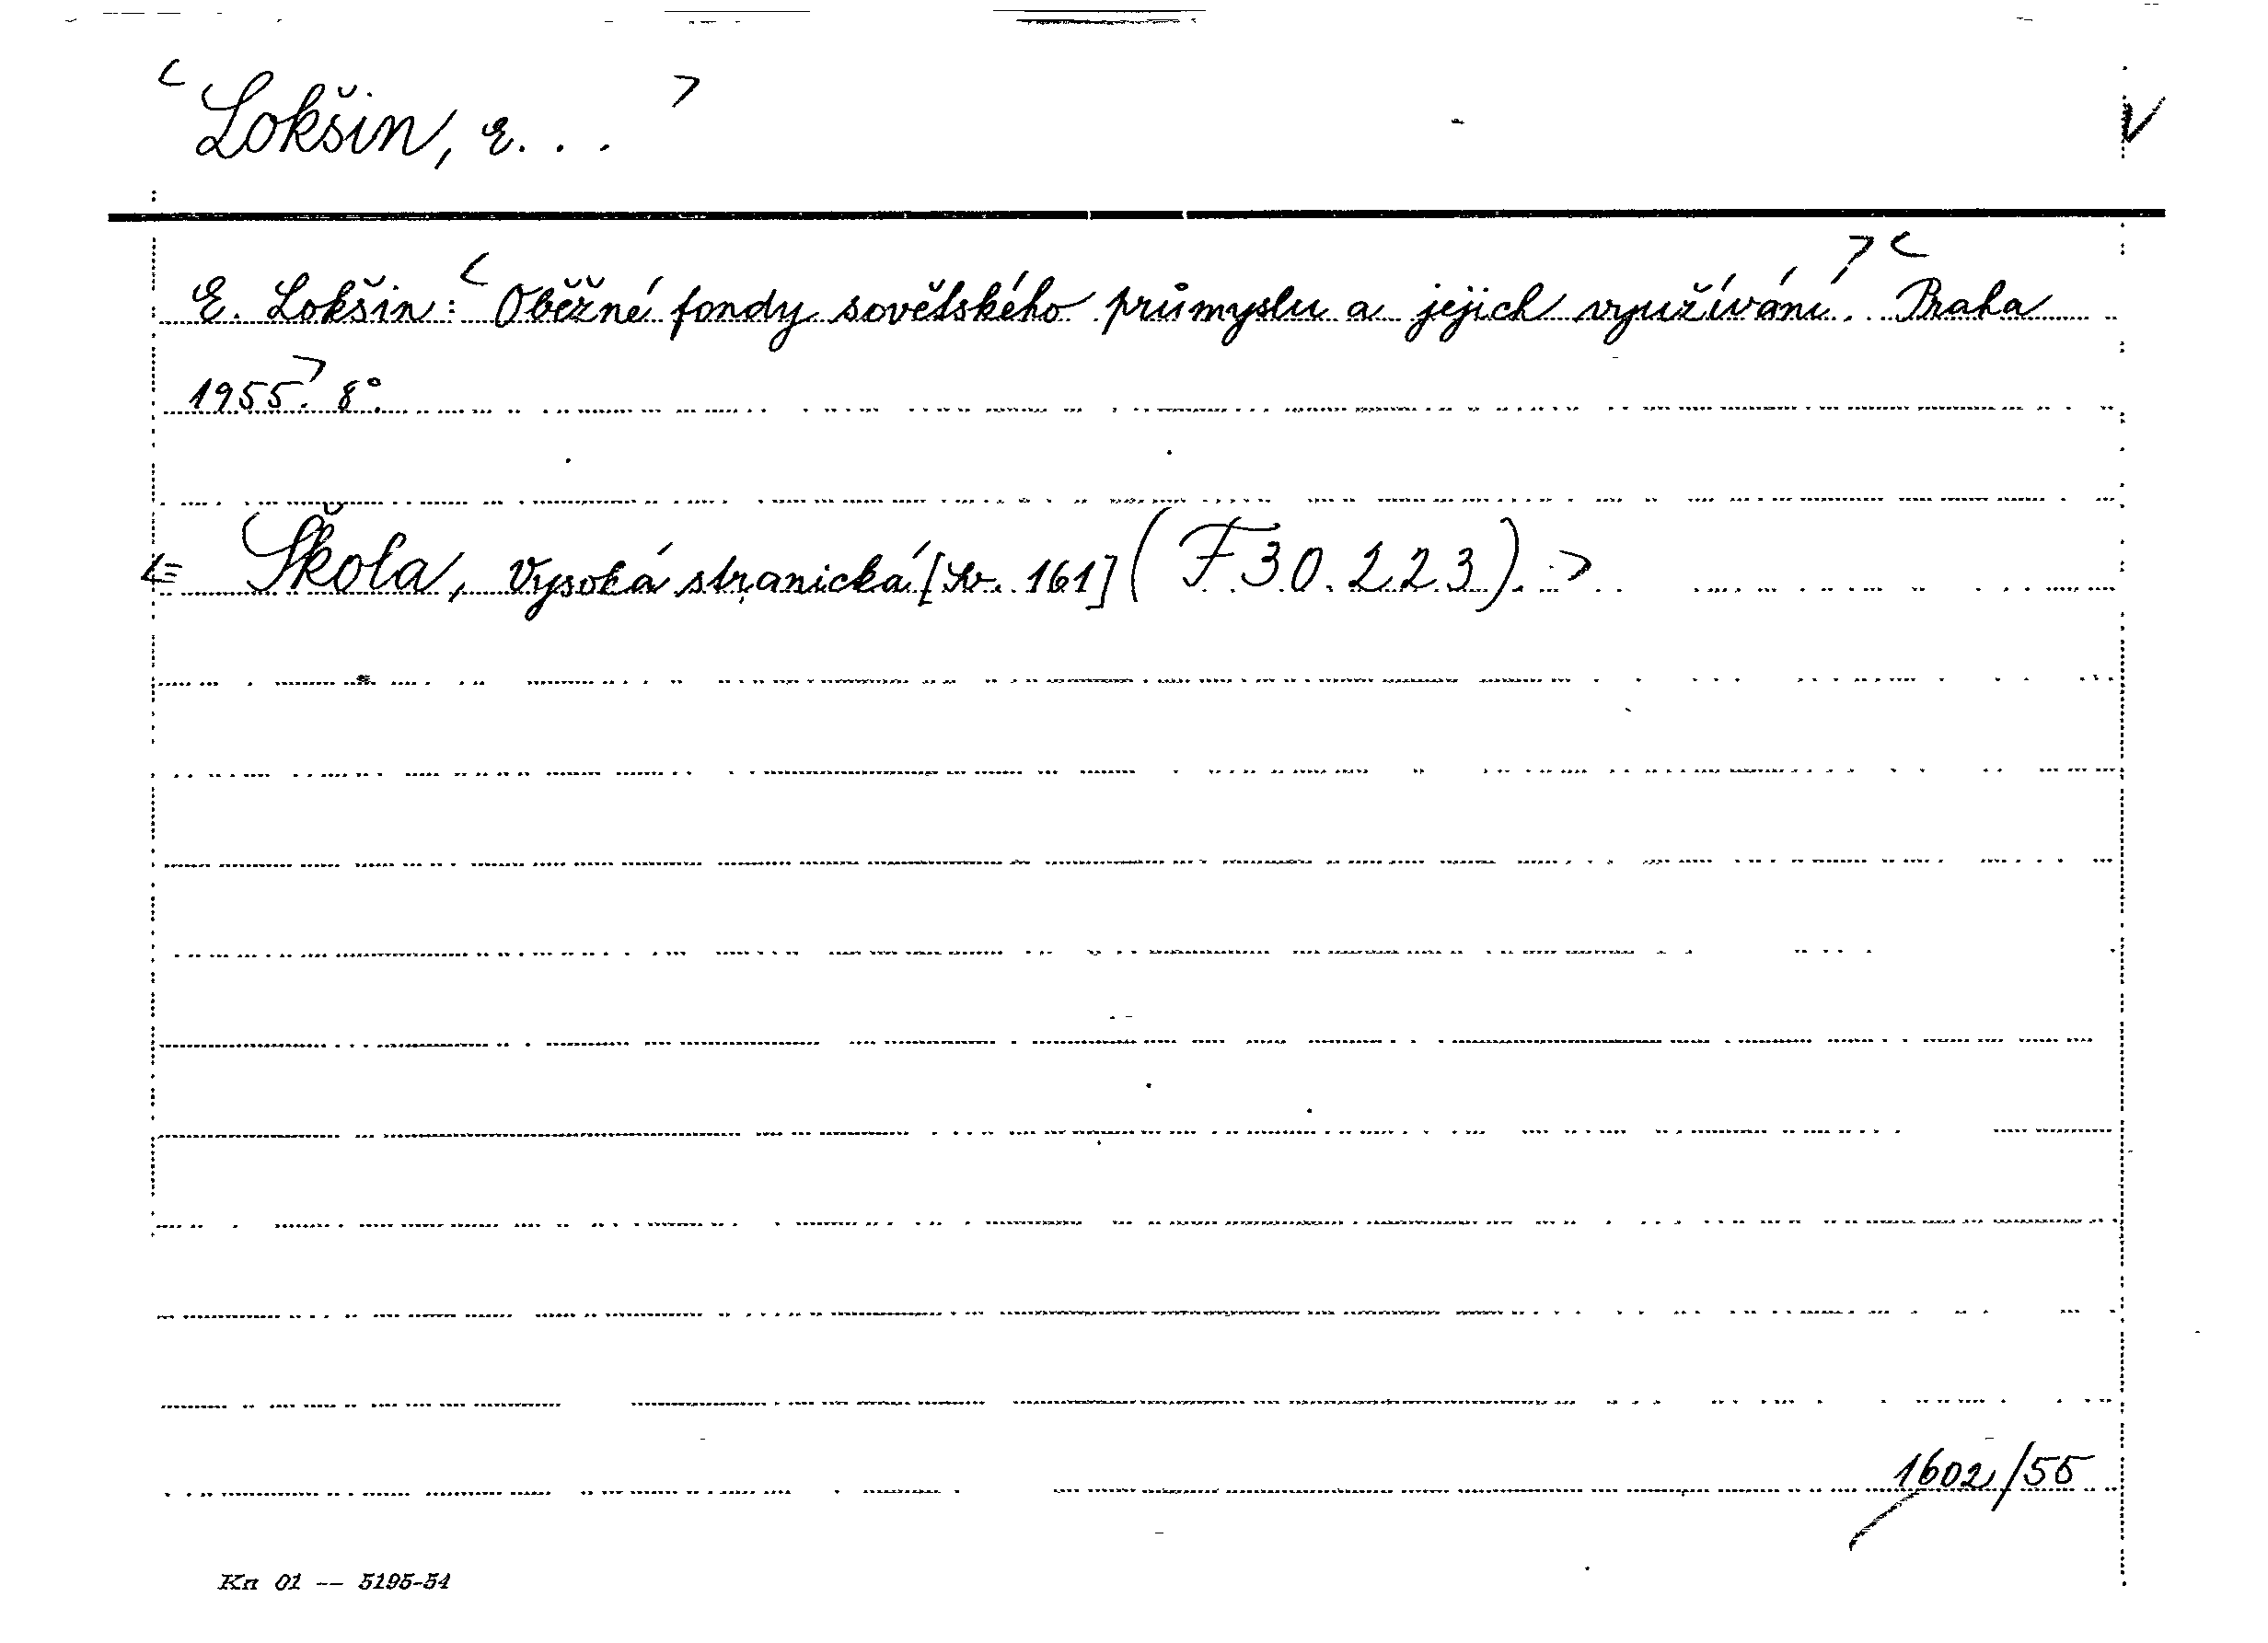 < Lokšin, E. . . >
V
E. Lokšin: < Oběžné fondy sovětského průmyslu a jejich využívání. > < Praha
1955. > 8°.
<= Škola, Vysoká stranická [Sv. 161] (F 30.223). >
1602/55
Kn 01 -- 5195-54